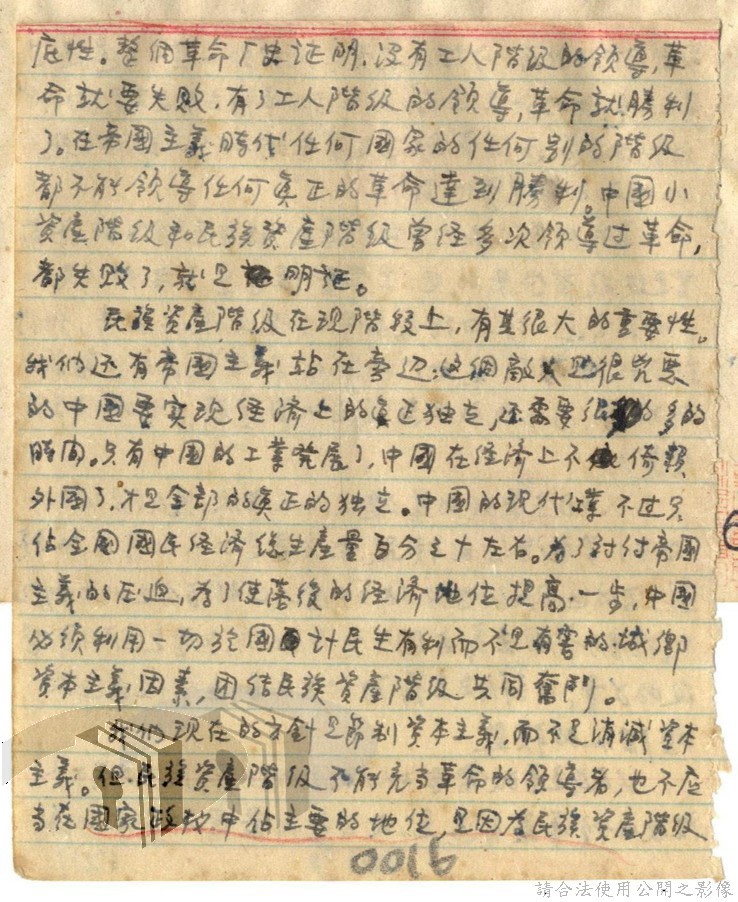 底性。整個革命厂史证明,没有工人階级的领導,革
命就要失败,有了工人階级的领導,革命就勝利
了。在帝國主義時代任何國家的任何别的階级
都不能领導任何真正的革命達到勝利。中國小
資產階级和民族資產階级曾经多次领導过革命,
都失败了,就是明证。
民族資產階级在现階段上,有其很大的重要性。
我们还有帝國主義站在旁边,这個敵人是很兇惡
的中國要实现经済上的真正独立,还需要很多的
時间。只有中國的工業発展了,中國在经済上不倚賴
外國了,才是全部的真正的独立。中國的现代業不过只
佔全國國民经済総生產量百分之十左右。为了対付帝國
主義的压迫,为了使落後的经済地位提高一步,中國
必须利用一切於國計民生有利而不是有害的城鄉
資本主義因素,团结民族資產階级共同奮鬥。
我们现在的方針是節制資本主義,而不是消滅資本
主義。但民族資產階级不能充当革命的领導者,也不应
当在國家政权中佔主要的地位,是因为民族資產階级
0016
6
請合法使用公開之影像